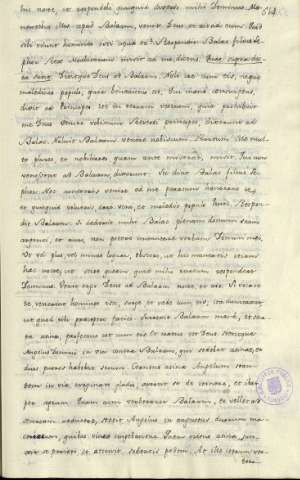 hic nocte, et respondebo quidquid dixerit mihi Dominus. Ma-
nentibus illis apud Balaam, venit Deus et ait ad eum: Quid
sibi volunt homines isti apud te? Respondit: Balac filius Se-
phor Rex Moabitarum misit ad me, dicens: Ecce
Dixitque Deus ad Balaam: Noli ire cum eis, neque
maledicas populo, quia benedictus est. Qui mane consurgens,
dixit ad Principes: Ite in terram vestram, quia prohibuit
me Deus venire vobiscum. Reversi Principes, dixerunt ad
Balac: Noluit Balaam venire nobiscum. Rursum ille mul-
to plures et nobiliores quam ante miserat, misit. Qui cum
venissent ad Balaam, dixerunt: Sic dicit Balac filius Se-
phor: Ne cuncteris venire ad me paratum honorare te,
et quidquid volueris, dabo tibi, veni, et maledic populo isti. Respon-
dit Balaam: Si dederit mihi Balac plenam domum suam
argenti, et auri, non potero immutare verbum Domini mei,
ut vel plus, vel minus loquar, obsecro, ut hic maneatis etiam
hac nocte, ut scire queam quid mihi rursum respondeat
Dominus. Venit ergo Deus ad Balaam nocte, et ait: Si vocare
te venerunt homines isti, surge et vade cum eis, ita dumtaxat,
ut quod tibi præcepero facias. Surrexit Balaam mane, et stra-
ta asina, profectus est cum eis. Et iratus est Deus. Stetitque
Angelus Domini in via contra Balaam, qui sedebat asinæ, et
duos pueros habebat secum. Cernens asina Angelum stan-
tem in via, evaginato gladio, avertit se de itinere, et ibat
per agrum. Quam cum verberaret Balaam, et vellet ad
semitam reducere, stetit Angelus in angustiis duarum ma-
ceriarum, quibus vineæ cingebantur. Quem videns asina, jun-
xit se parieti, et attrivit sedentis pedem. At ille iterum ver-